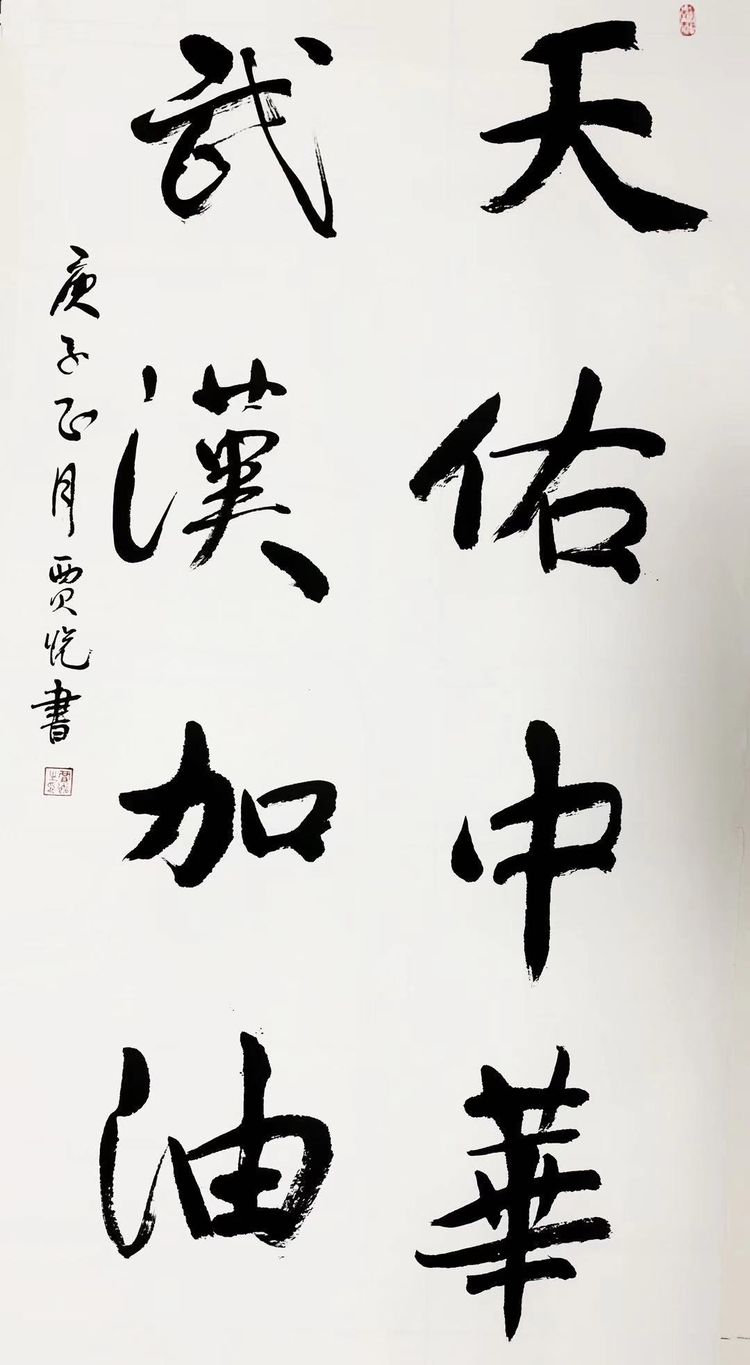 天佑中華
武漢加油
庚子正月賈悦書